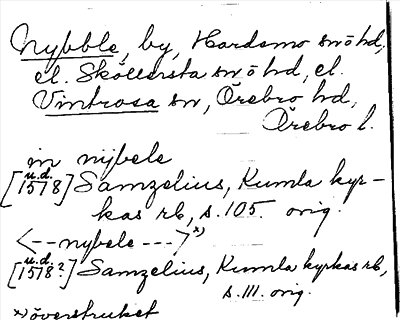 Nybble, by, Hardemo sn o hd,
el. Sköllersta sn o hd, el.
Vintrosa sn, Örebro hd,
Örebro l.
in nijbele
u.d.
[1578] Samzelius, Kumla kyr-
kas rb, s. 105. orig.
<--nybele---> x)
u.d.
[1578?] Samzelius, Kumla kyrkas rb,
s. 111. orig.
x) överstruket